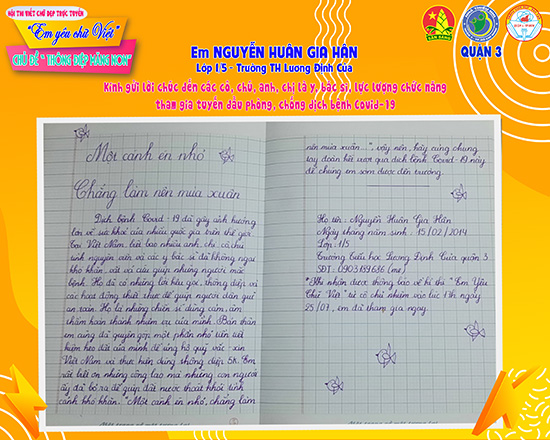 HỘI THI VIẾT CHỮ ĐẸP TRỰC TUYẾN
"Em yêu chữ Việt"
CHỦ ĐỀ "THÔNG ĐIỆP MĂNG NON"
QUẬN 3
Em NGUYỄN HUÂN GIA HÂN
Lớp 1/5 - Trường TH Lương Định Của
Kính gửi lời chúc đến các cô, chú, anh, chị là y, bác sĩ, lực lượng chức năng
tham gia tuyến đầu phòng, chống dịch bệnh Covid-19
Một cánh én nhỏ
Chẳng làm nên mùa xuân
Dịch bệnh Covid-19 đã gây ảnh hưởng
lớn về sức khỏe của nhiều quốc gia trên thế giới.
Tại Việt Nam, biết bao nhiêu anh, chị, cô, chú
tình nguyện viên và các y bác sĩ đã không ngại
khó khăn, vất vả cứu giúp những người mắc
bệnh. Họ đã có những lời kêu gọi, thông điệp và
các hoạt động thiết thực để giúp người dân giữ
an toàn. Họ là những chiến sĩ dũng cảm, âm
thầm hoàn thành nhiệm vụ của mình. Bản thân
em cũng đã quyên góp một phần nhỏ tiền tiết
kiệm heo đất của mình để ủng hộ quỹ vắc-xin
Việt Nam và thực hiện đúng thông điệp 5K. Em
rất biết ơn những công lao mà những con người
ấy đã bỏ ra để giúp đất nước thoát khỏi tình
cảnh khó khăn. "Một cánh én nhỏ, chẳng làm
nên mùa xuân...", vậy nên, hãy cùng chung
tay đoàn kết vượt qua dịch bệnh Covid-19 này
để chúng em sớm được đến trường.
Họ tên: Nguyễn Huân Gia Hân
Ngày tháng năm sinh: 15/02/2014
Lớp: 1/5
Trường tiểu học Lương Định Của quận 3
SĐT: 0903189636 (mẹ)
*Khi nhận được thông báo về hội thi "Em Yêu
Chữ Việt" từ cô chủ nhiệm vào lúc 17h ngày
25/07, em đã tham gia ngay.